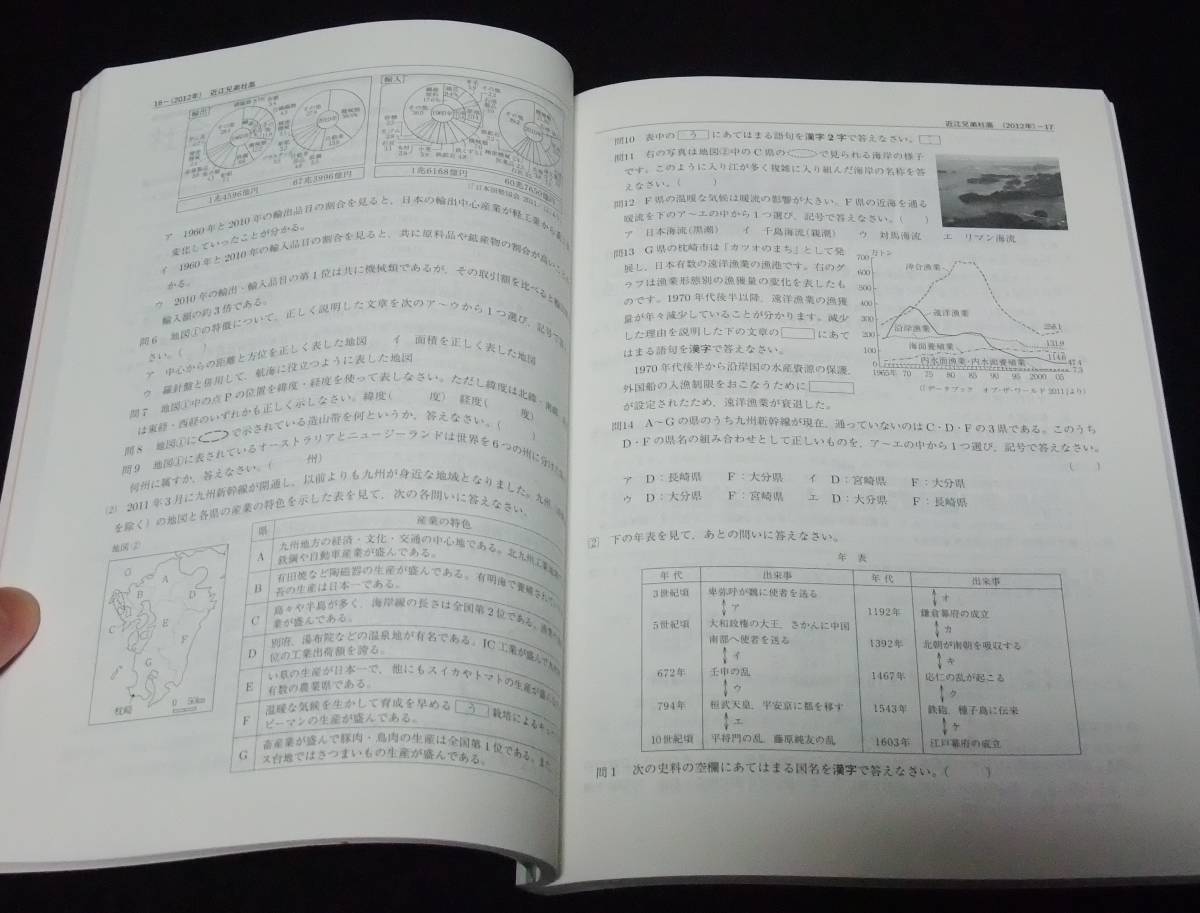 16-(2012年) 近江兄弟社高
輸出
輸入
1兆4596億円
67兆3996億円
1兆6168億円
60兆7650億円
ア 1960年と2010年の輸出品目の割合を見ると、日本の輸出中心産業が軽工業から
変化していったことが分かる。
イ 1960年と2010年の輸入品目の割合を見ると、共に原料品や鉱産物の割合が高い
かる。
ウ 2010年の輸出・輸入品目の第1位は共に機械類であるが、その取引額を比べると
輸入額の約3倍である。
問6 地図①の特徴について、正しく説明した文章を次のア～ウから1つ選び、記号で
さい。( )
ア 中心からの距離と方位を正しく表した地図 イ 面積を正しく表した地図
ウ 羅針盤と併用して、航海に役立つように表した地図
問7 地図①中の点Pの位置を緯度・経度を使って表しなさい。ただし緯度は北緯・南緯
は東経・西経のいずれかも正しく示しなさい。緯度( 度) 経度( 度)
問8 地図①にで示されている造山帯を何というか、答えなさい。( )
問9 地図①に表されているオーストラリアとニュージーランドは世界を6つの州に分けた
何州に属すか、答えなさい。( 州)
(2) 2011年3月に九州新幹線が開通し、以前よりも九州が身近な地域となりました。九州
を除く)の地図と各県の産業の特色を示した表を見て、次の各問いに答えなさい。
地図②
A
B
C
D
E
F
G
枕崎
0 50km
県 産業の特色
A 九州地方の経済・文化・交通の中心地である。北九州工業地
鉄鋼や自動車産業が盛んである。
B 有田焼など陶磁器の生産が盛んである。有明海で養殖され
苔の生産は日本一である。
C 島々や半島が多く、海岸線の長さは全国第2位である。
業が盛んである。
D 別府、湯布院などの温泉地が有名である。IC工業が盛んで
位の工業出荷額を誇る。
E い草の生産が日本一で、他にもスイカやトマトの生産が盛ん
有数の農業県である。
F 温暖な気候を生かして育成を早める う 栽培による
ピーマンの生産が盛んである。
G 畜産業が盛んで豚肉・鳥肉の生産は全国第1位である。また
ス台地ではさつまいもの生産が盛んである。
近江兄弟社高 (2012年)-17
問10 表中の う にあてはまる語句を漢字2字で答えなさい。
問11 右の写真は地図②中のC県ので見られる海岸の様子
です。このように入り江が多く複雑に入り組んだ海岸の名称を答
えなさい。( )
問12 F県の温暖な気候は暖流の影響が大きい。F県の近海を通る
暖流を下のア～エの中から1つ選び、記号で答えなさい。( )
ア 日本海流(黒潮) イ 千島海流(親潮) ウ 対馬海流 エ リマン海流
問13 G県の枕崎市は「カツオのまち」として発
展し、日本有数の遠洋漁業の漁港です。右のグ
ラフは漁業形態別の漁獲量の変化を表したも
のです。1970年代後半以降、遠洋漁業の漁獲
量が年々減少していることが分かります。減少
した理由を説明した下の文章の にあて
はまる語句を漢字で答えなさい。
1970年代後半から沿岸国の水産資源の保護、
外国船の入漁制限をおこなうために
が設定されたため、遠洋漁業が衰退した。
万トン
700
600
500
400
300
200
100
0
沖合漁業
遠洋漁業
沿岸漁業
海面養殖業
内水面漁業・内水面養殖業
258.1
131.9
114.6
47.4
7.3
1965年 70 75 80 85 90 95 2000 05
(『データブック オブ・ザ・ワールド 2011』より)
問14 A～Gの県のうち九州新幹線が現在、通っていないのはC・D・Fの3県である。このうち
D・Fの県名の組み合わせとして正しいものを、ア～エの中から1つ選び、記号で答えなさい。
( )
ア D：長崎県 F：大分県 イ D：宮崎県 F：大分県
ウ D：大分県 F：宮崎県 エ D：大分県 F：長崎県
2 下の年表を見て、あとの問いに答えなさい。
年 表
年代 出来事 年代 出来事
3世紀頃 卑弥呼が魏に使者を送る
ア
5世紀頃 大和政権の大王、さかんに中国
南部へ使者を送る
イ
672年 壬申の乱
ウ
794年 桓武天皇、平安京に都を移す
エ
10世紀頃 平将門の乱、藤原純友の乱
オ
1192年 鎌倉幕府の成立
カ
1392年 北朝が南朝を吸収する
キ
1467年 応仁の乱が起こる
ク
1543年 鉄砲、種子島に伝来
ケ
1603年 江戸幕府の成立
問1 次の史料の空欄にあてはまる国名を漢字で答えなさい。( )